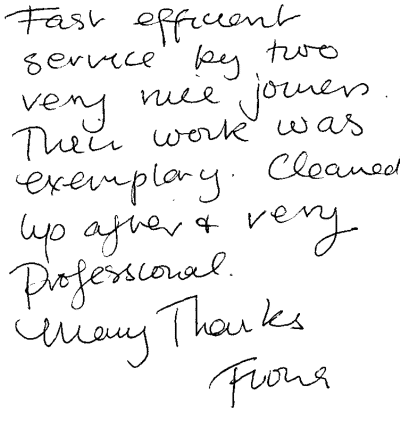 Fast efficient
service by two
very nice joiners.
Their work was
exemplary. Cleaned
up after & very
Professional.
Many Thanks
Fiona